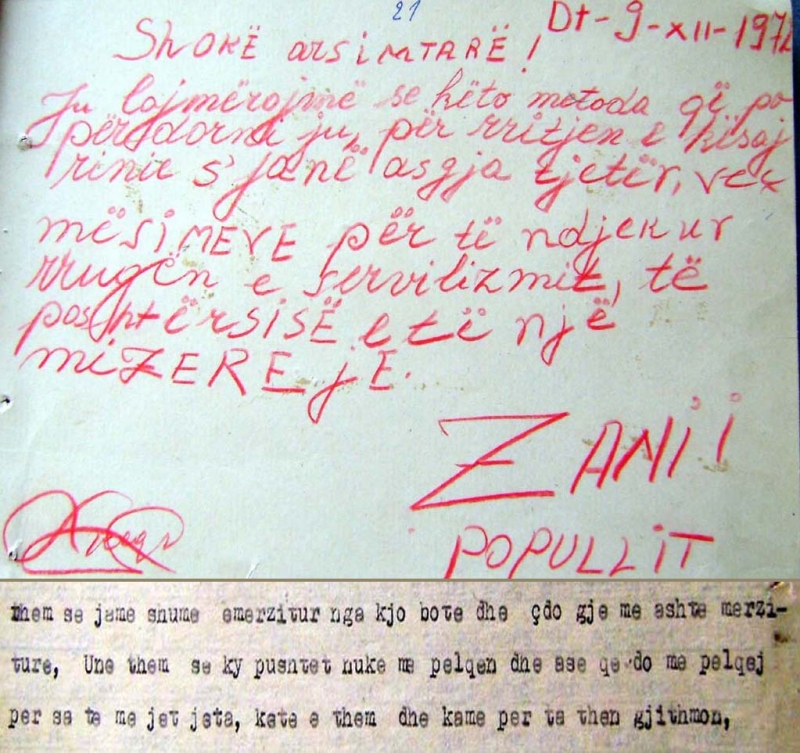 21
Dt-9-XII-197
SHOKË ARSIMTARË!
Ju lajmërojmë se këto metoda që po
përdorni ju, për rritjen e kësaj
rinie s'janë asgja tjetër, veç
mësiMEVE për të ndjekur
rrugën e servilizmit, të
poshtËRSISË e të një
MIZEREjE.
ZANI i
POPULLIT
them se jame shume emerzitur nga kjo bote dhe çdo gje me ashte merzi-
ture, Une them se ky pushtet nuke me pelqen dhe ase qe do me pelqej
per sa te me jet jeta, kete e them dhe kame per ta then gjithmon,